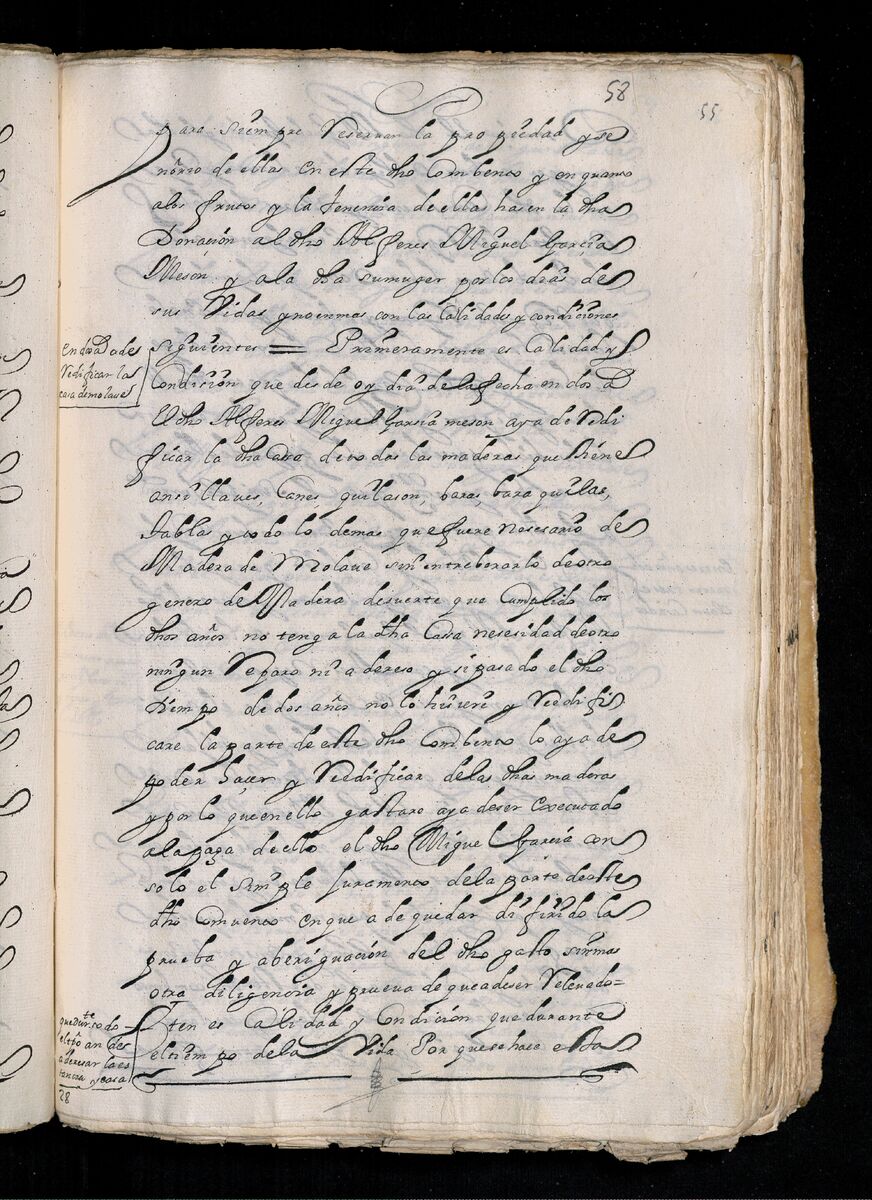 58
55
para siempre Reservan la propiedad y se
ñorio de ellas en este dho Combento y en quanto
a los frutos y la tenencia de ellas hasen la dha
Donaçion al dho Alferes Miguel Garçia
Meson y a la dha su muger por los dias de
sus Vidas y no en mas con las Calidades y condiciones
siguientes = Primeramente es Calidad y
Condision que desde oy dia de la fecha en dos a
El dho Alferes Miguel Garsia meson aya de Redi
ficar la dha Casa de todas las maderas que tiene
ansi llaves, Canes, quilason, baras, baraquilas,
tablas y todo lo demas que fuere nesesario de
Madera de Molaue sin entreberarlo de otro
genero de Madera desuerte que Cumplido los
dhos años no tenga la dha Casa nesesidad de otro
ningun Reparo ni adereso y si pasado el dho
tiempo de dos años no lo hiuiere y Reedifi
care la parte de este dho Combento lo aya de
poder haçer y Reedificar de las dhas maderas
y por lo que en ello gastare aya de ser Executado
a la paga de ello el dho Miguel Garcia con
solo el simple Juramento de la parte de este
dho Comuento en que a de quedar difirido la
prueba y aberiguaçion del dho gasto sin mas
otra diligencia y prueva de que a de ser Releuado =
Iten es Calidad y Condiçion que durante
el tiempo de la Vida Por que se hace esta
en dos a de
Redificar las
casa de molaues
que durte todo
el tpo an de
aderesar la es
tancia y casa
28